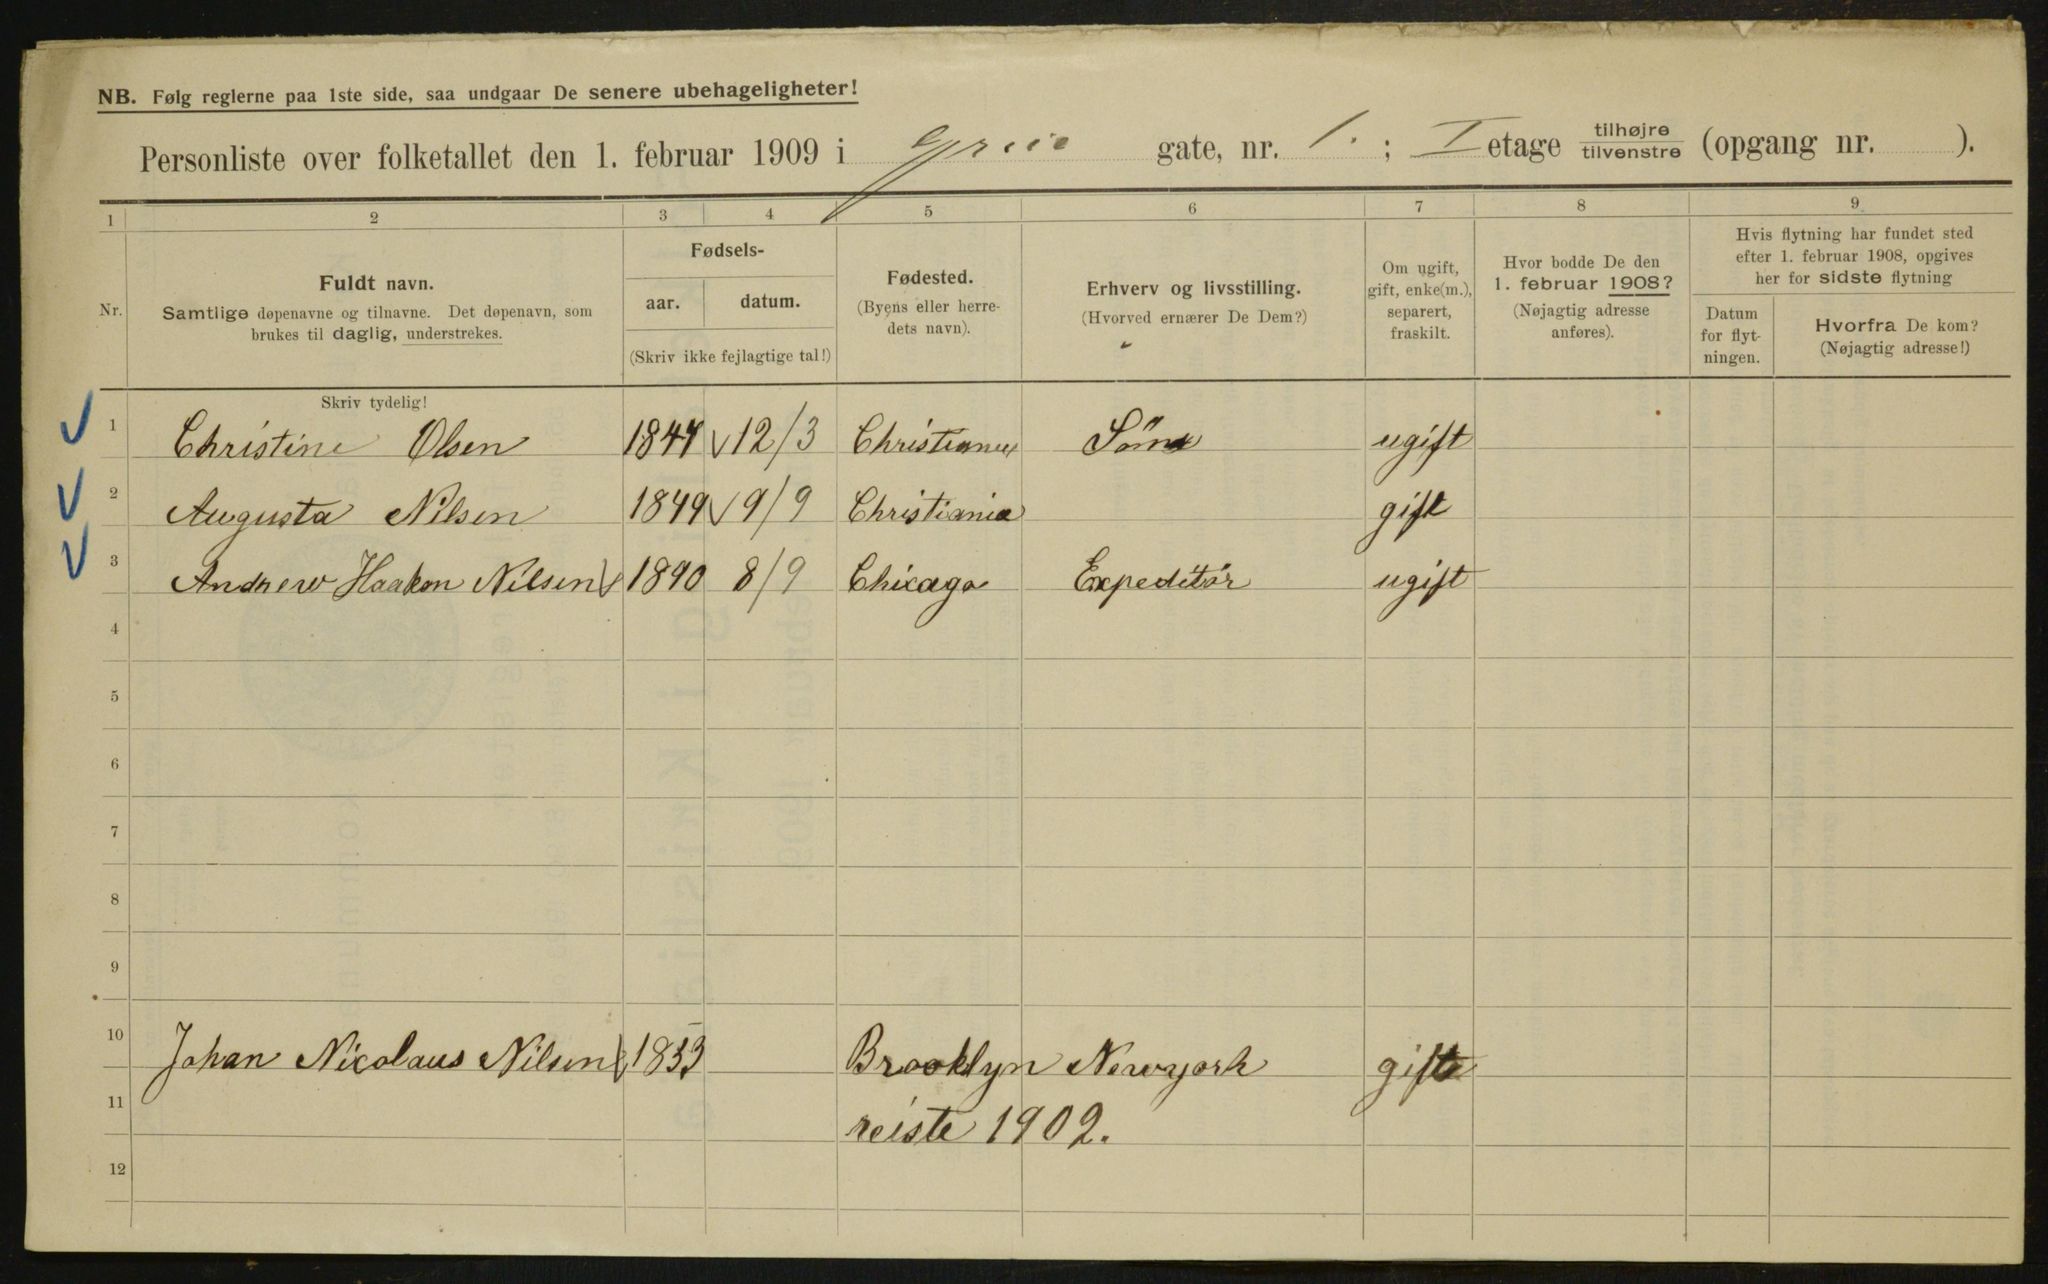 NB. Følg reglerne paa 1ste side, saa undgaar De senere ubehageligheter!
Personliste over folketallet den 1. februar 1909 i gate, nr. 1. ; I etage tilhøjre tilvenstre (opgang nr. ).
1 2 3 4 5 6 7 8 9
Nr.
Fuldt navn.
Samtlige døpenavne og tilnavne. Det døpenavn, som
brukes til daglig, understrekes.
Fødsels-
aar. datum.
(Skriv ikke fejlagtige tal!)
Fødested.
(Byens eller herre-
dets navn).
Erhverv og livsstilling.
(Hvorved ernærer De Dem?)
Om ugift,
gift, enke(m.),
separert,
fraskilt.
Hvor bodde De den
1. februar 1908?
(Nøjagtig adresse
anføres).
Hvis flytning har fundet sted
efter 1. februar 1908, opgives
her for sidste flytning
Datum
for flyt-
ningen.
Hvorfra De kom?
(Nøjagtig adresse!)
Skriv tydelig!
1 Christine Olsen 1847 12/3 Christiania ugift
2 Augusta Nilsen 1849 9/9 Christiania gift
3 Andrew Haakon Nilsen 1890 8/9 Chicago Expeditör ugift
4
5
6
7
8
9
10 Johan Nicolaus Nilsen 1853 Brooklyn Newyork gift
11 reiste 1902.
12